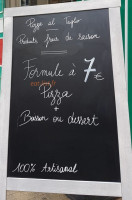 Pizza al Taglio
Produits frais de saison
Formule à 7€
Pizza
+
Boisson ou dessert
100% Artisanal